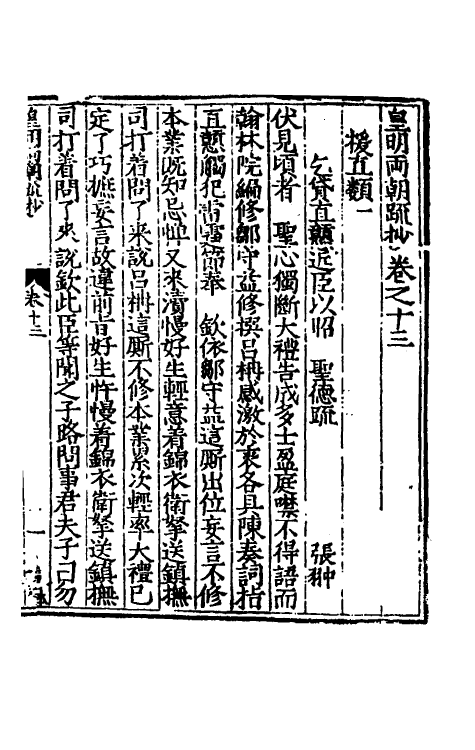 皇明兩朝疏抄卷之十三
援直類一
乞貸直戇近臣以昭 聖德疏
張翀
伏見頃者 聖心獨斷大禮告成多士盈庭噤不得語而
翰林院編修鄒守益修撰呂柟感激於衷各具陳奏詞指
直戇觸犯雷霆節奉 欽依鄒守益這厮出位妄言不修
本業既知忌憚又來瀆慢好生輕意着錦衣衛拏送鎮撫
司打着問了來說呂柟這厮不修本業累次輕率大禮已
定了巧摭妄言故違前旨好生忤慢着錦衣衛拏送鎮撫
司打着問了來說欽此臣等聞之子路問事君夫子曰勿
皇明兩朝疏抄
卷十三
一